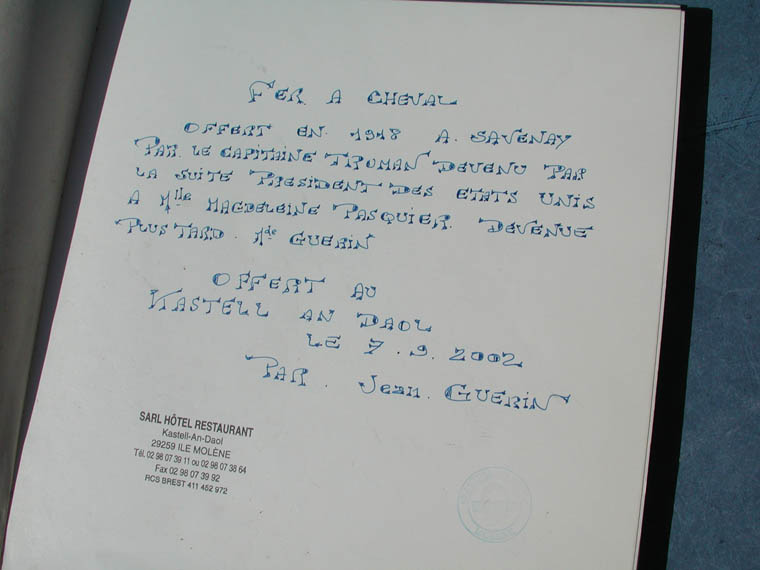 FER A CHEVAL
OFFERT EN 1918 A. SAVENAY
PAR. LE CAPITAINE TROMAN DEVENU PAR
LA SUITE PRESIDENT DES ETATS UNIS
A Mlle MAGDELEINE PASQUIER. DEVENUE
PLUS TARD. Mde GUERIN
OFFERT AU
KASTELL AN DAOL
LE 7.9.2002
PAR. Jean. GUERIN
SARL HÔTEL RESTAURANT
Kastell-An-Daol
29259 ILE MOLÈNE
Tél. 02 98 07 39 11 ou 02 98 07 38 64
Fax 02 98 07 39 92
RCS BREST 411 452 972